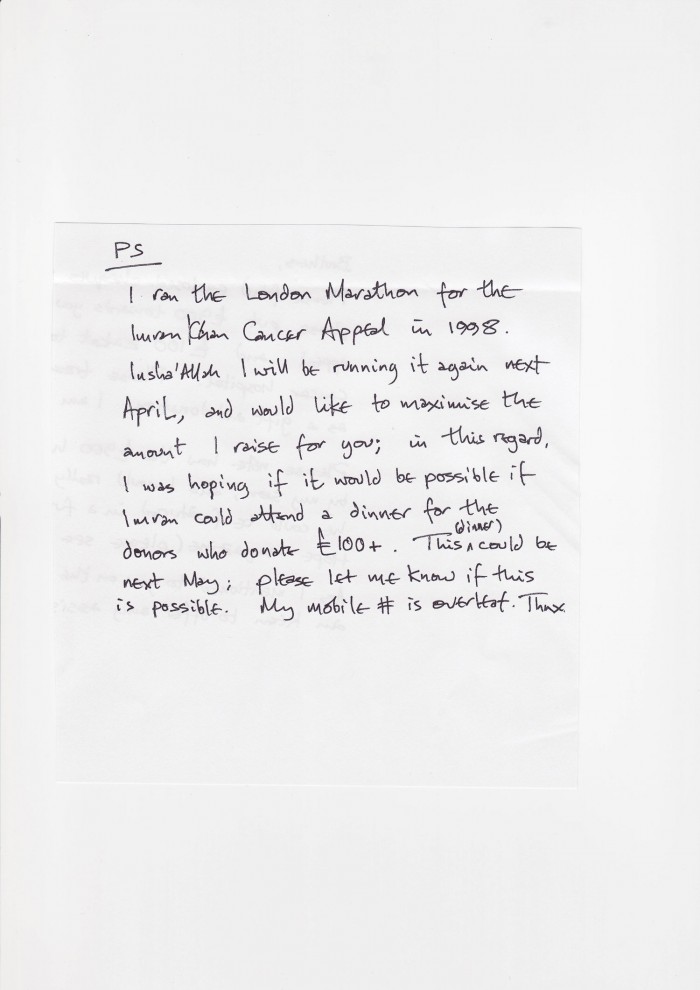 PS
I ran the London Marathon for the
Imran Khan Cancer Appeal in 1998.
Insha'Allah I will be running it again next
April, and would like to maximise the
amount I raise for you; in this regard,
I was hoping if it would be possible if
Imran could attend a dinner for the
donors who donate £100+. This ^ (dinner) could be
next May; please let me know if this
is possible. My mobile # is overleaf. Thnx.